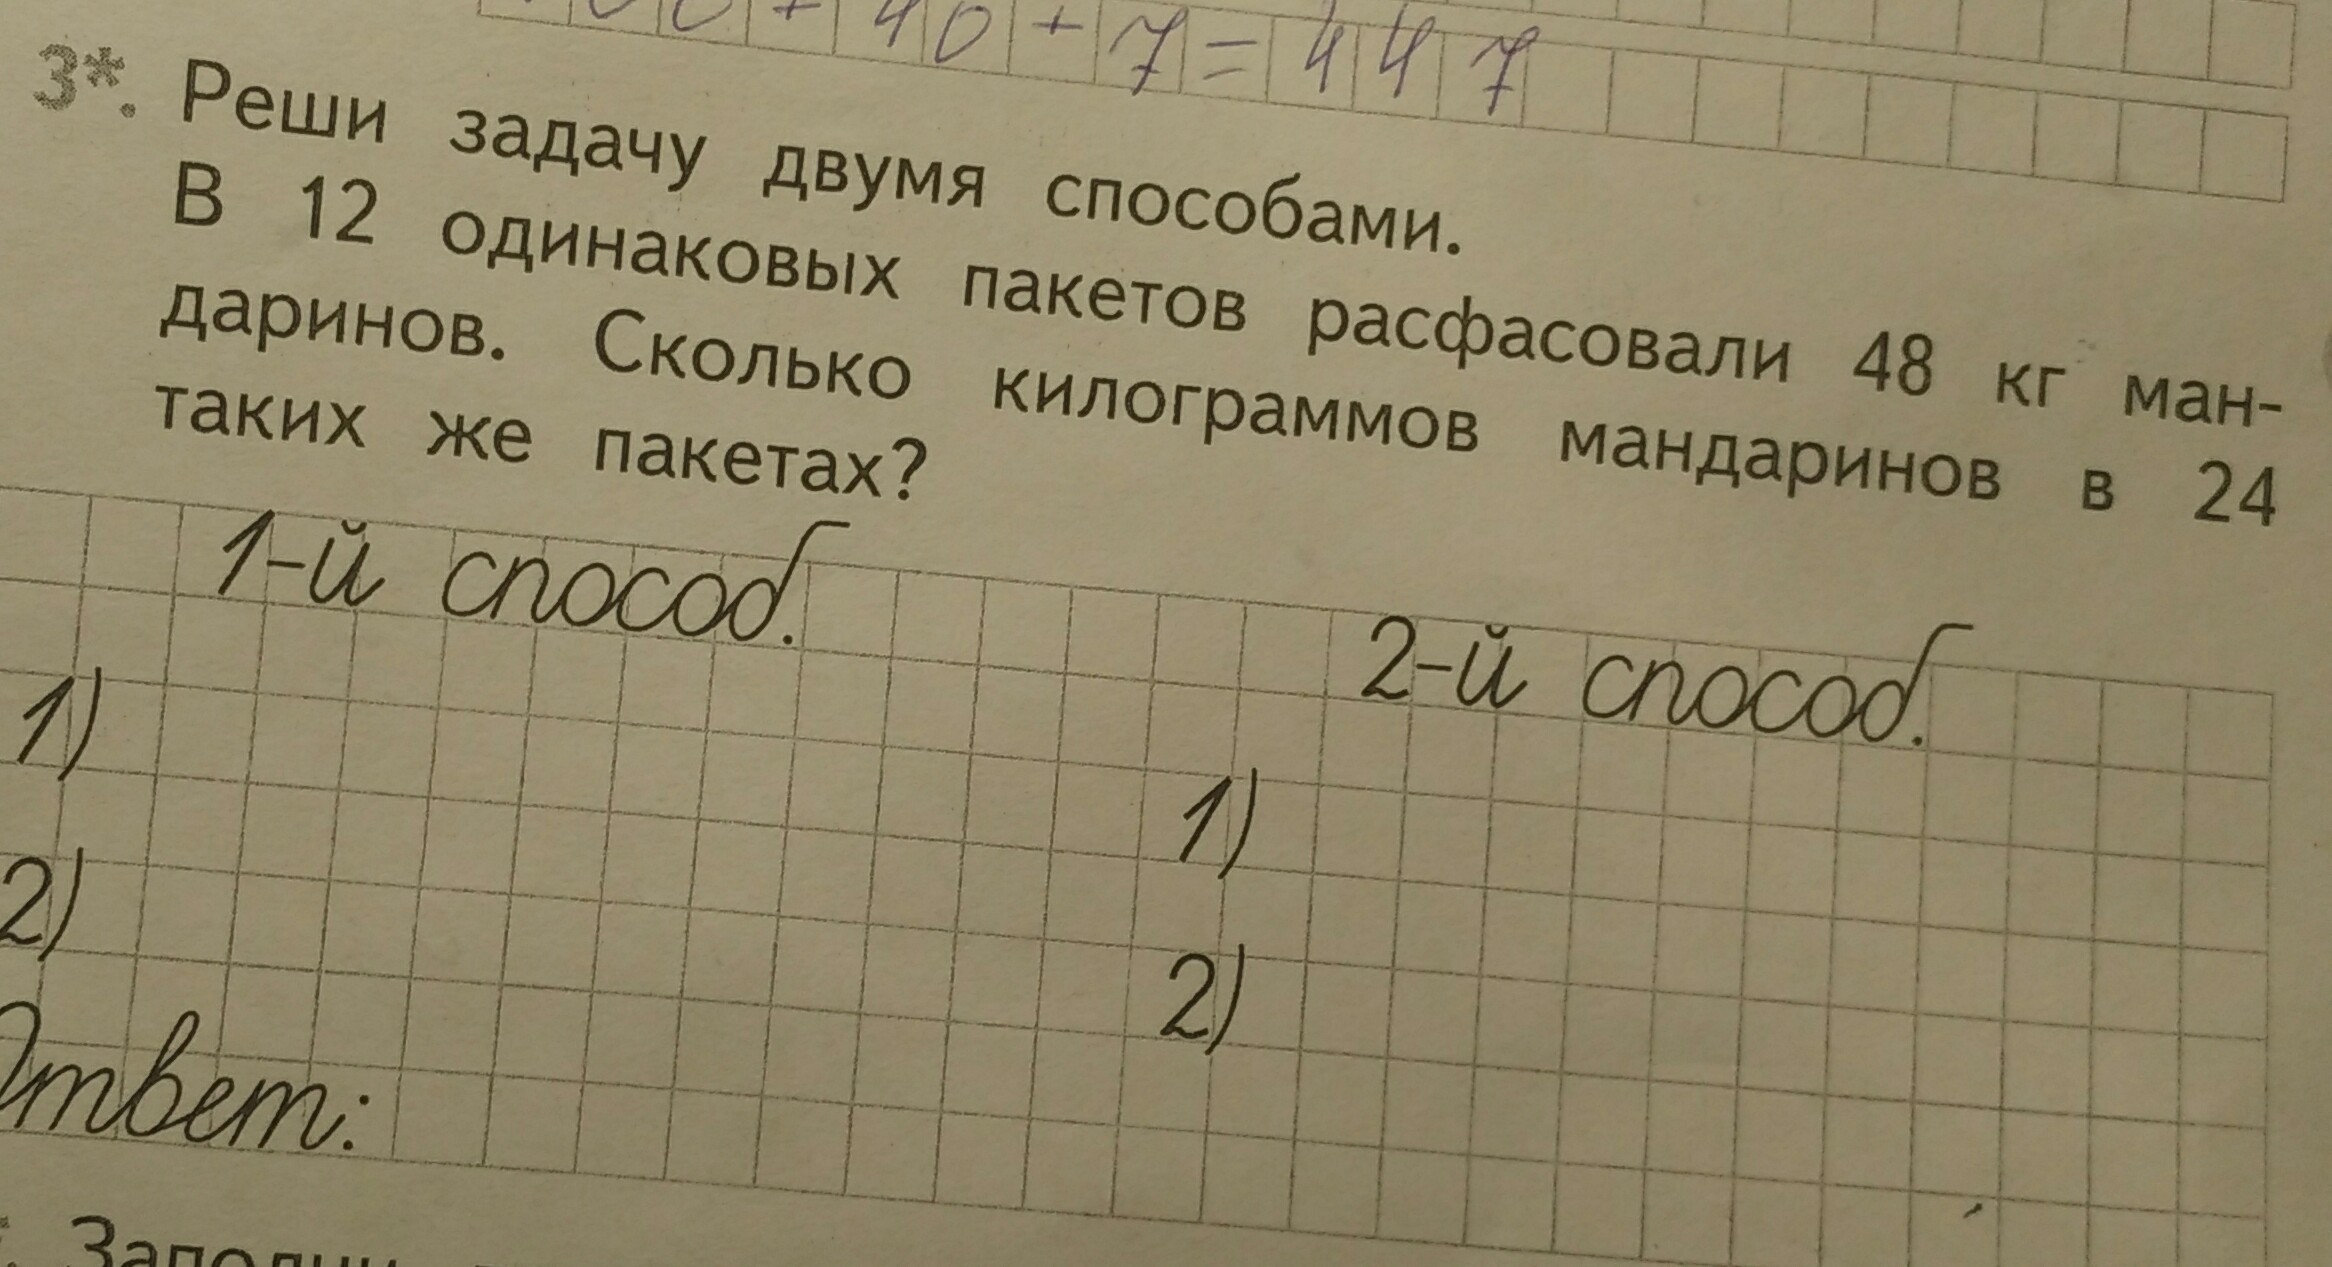 00 + 40 + 7 = 447
3*. Реши задачу двумя способами.
В 12 одинаковых пакетов расфасовали 48 кг ман-
даринов. Сколько килограммов мандаринов в 24
таких же пакетах?
1-й способ. 2-й способ.
1) 1)
2) 2)
Ответ: